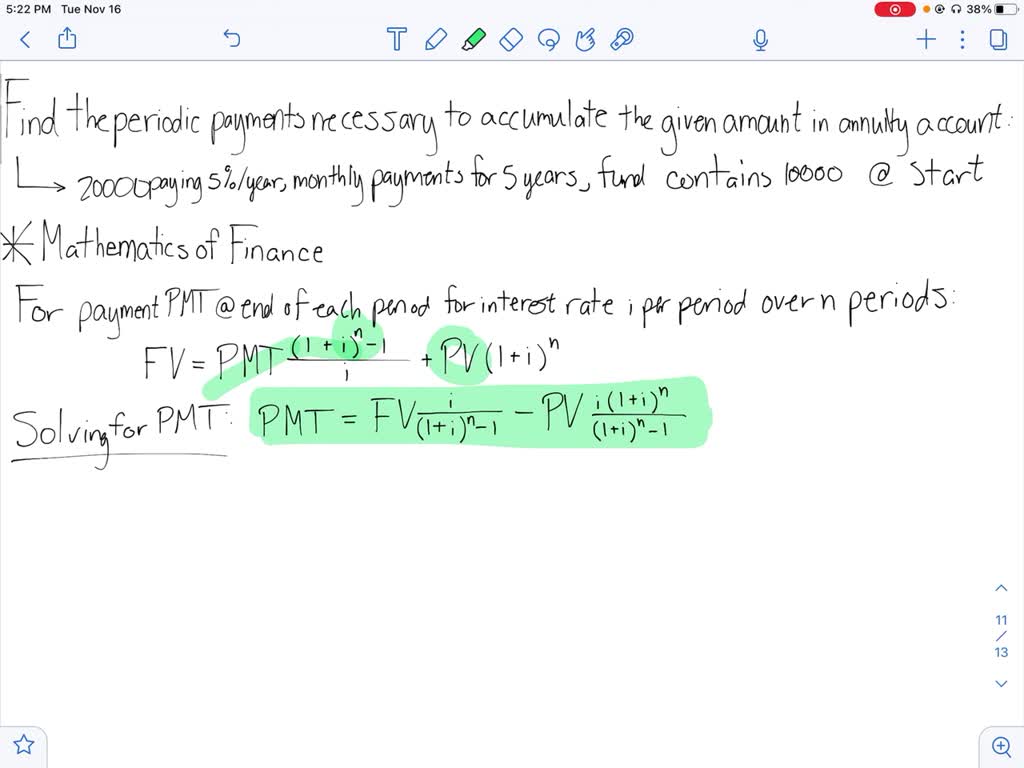 5:22 PM Tue Nov 16
38%
Find the periodic payments necessary to accumulate the given amount in annuity account:
↳ 20000 paying 5%/year, monthly payments for 5 years, fund contains 10000 @ start
* Mathematics of Finance
For payment PMT @ end of each period for interest rate i per period over n periods:
FV = PMT ((1+i)^n - 1)/i + PV(1+i)^n
Solving for PMT: PMT = FV i/((1+i)^n - 1) - PV i(1+i)^n/((1+i)^n - 1)
11
/
13